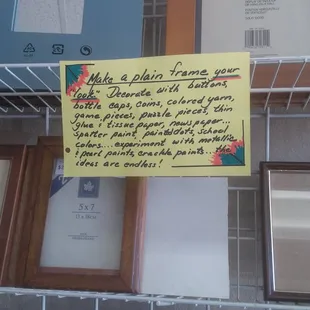 Make a plain frame your
"look" Decorate with buttons,
bottle caps, coins, colored yarn,
game pieces, puzzle pieces, thin
glue & tissue paper, newspaper...
spatter paint, painted dots, school
colors.... experiment with metallic
& pearl paints, crackle paints...the
ideas are endless!
5 x 7